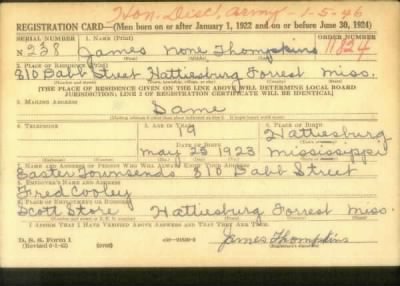 Hon. Disc. Army - 1-5-46
REGISTRATION CARD—(Men born on or after January 1, 1922 and on or before June 30, 1924)
SERIAL NUMBER 1. NAME (Print) ORDER NUMBER
N 238 James None Thompkins 11824
(First) (Middle) (Last)
2. PLACE OF RESIDENCE (Print)
810 Babb Street Hattiesburg Forrest Miss.
[THE PLACE OF RESIDENCE GIVEN ON THE LINE ABOVE WILL DETERMINE LOCAL BOARD
JURISDICTION; LINE 2 OF REGISTRATION CERTIFICATE WILL BE IDENTICAL]
3. MAILING ADDRESS
Same
4. TELEPHONE 5. AGE IN YEARS 6. PLACE OF BIRTH
19 Hattiesburg
DATE OF BIRTH
May 25 1923 Mississippi
7. NAME AND ADDRESS OF PERSON WHO WILL ALWAYS KNOW YOUR ADDRESS
Easter Townsends 810 Babb Street
8. EMPLOYER'S NAME AND ADDRESS
Fred Cooley
9. PLACE OF EMPLOYMENT OR BUSINESS
Scott Store Hattiesburg Forrest Miss.
I AFFIRM THAT I HAVE VERIFIED ABOVE ANSWERS AND THAT THEY ARE TRUE.
D. S. S. Form 1
James Thompkins